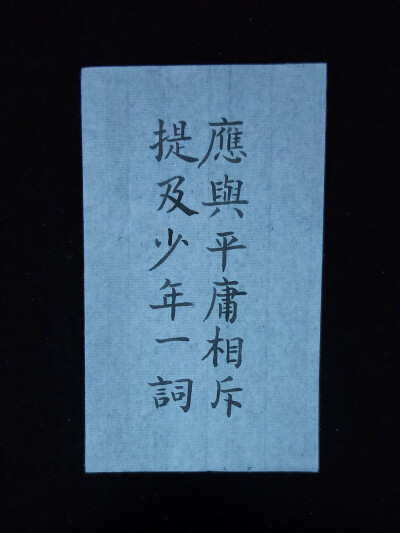 提及少年一詞
應與平庸相斥